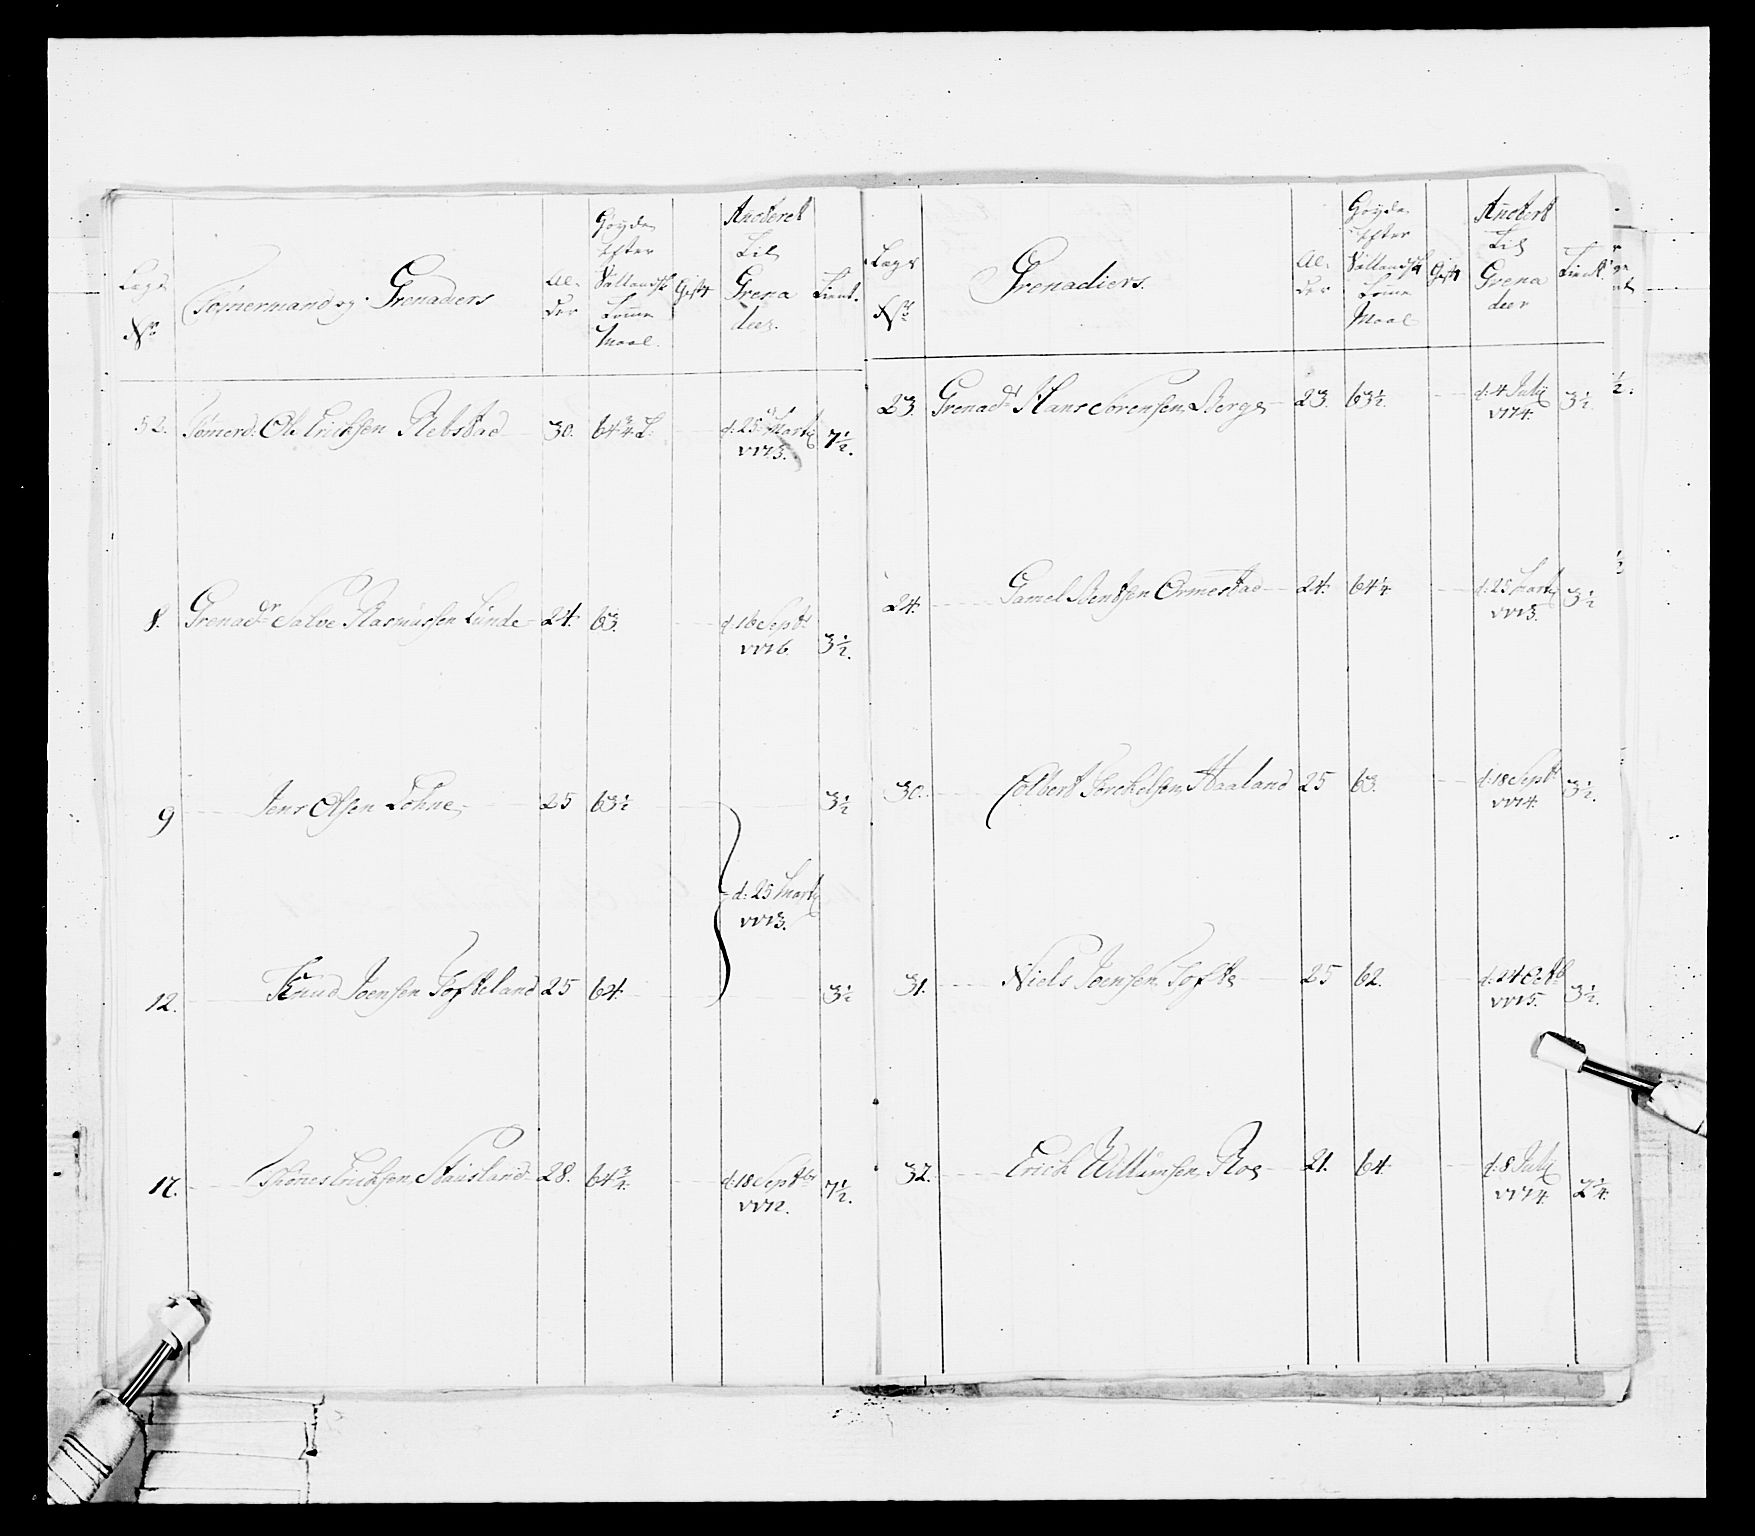 Lægs No
Tømermand og Grenadiers
Al- der
Høyde Efter Sællandsk Tomme Maal
Gift
Anteret til Grena deer.
Tient.
52. Tømerd: Ole Erichsen Rebstad 30. 64 3/4 T. d: 25 Martij 1773. 7 1/2.
8. Grenadr Salve Rasmussen Lunde 24. 63. d. 16 Septr 1776. 3 1/2.
9 Jens Olsen Lohne 25 63 1/2 3 1/2
d: 25 Martij 1773.
12. Knud Joensen Tofteland 25 64. 3 1/2
17. Tønes Erichsen Stausland 28. 64 3/4. d: 18 Septbr 1772. 7 1/2.
Lægs No
Grenadiers.
Al- der
Høyde Efter Sællandsk Tomme Maal
Gift
Antert til Grena deer
Tient.
23. Grenadr Hans Sørensen Berge 23. 63 1/2. d: 4 Julij 1774. 3 1/2
24. Gamel Bentsen Ormestad 24. 64 1/4 d: 25 Martij 1773. 3 1/2
30. Colbert Torchelsen Haaland 25 63. d: 18 Septr 1774. 3 1/2.
31. Niels Joensen Tofte 25 62. d: 24 Octb 1775. 3 1/2.
32. Erich Willumsen Roe 21. 64. d: 8 Julij 1774. 2 1/4.